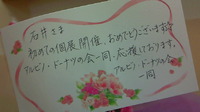 石井さま
初めての個展開催、おめでとうございます。
アルビノ・ドーナツの会一同、応援しております。
アルビノ・ドーナツの会
一同